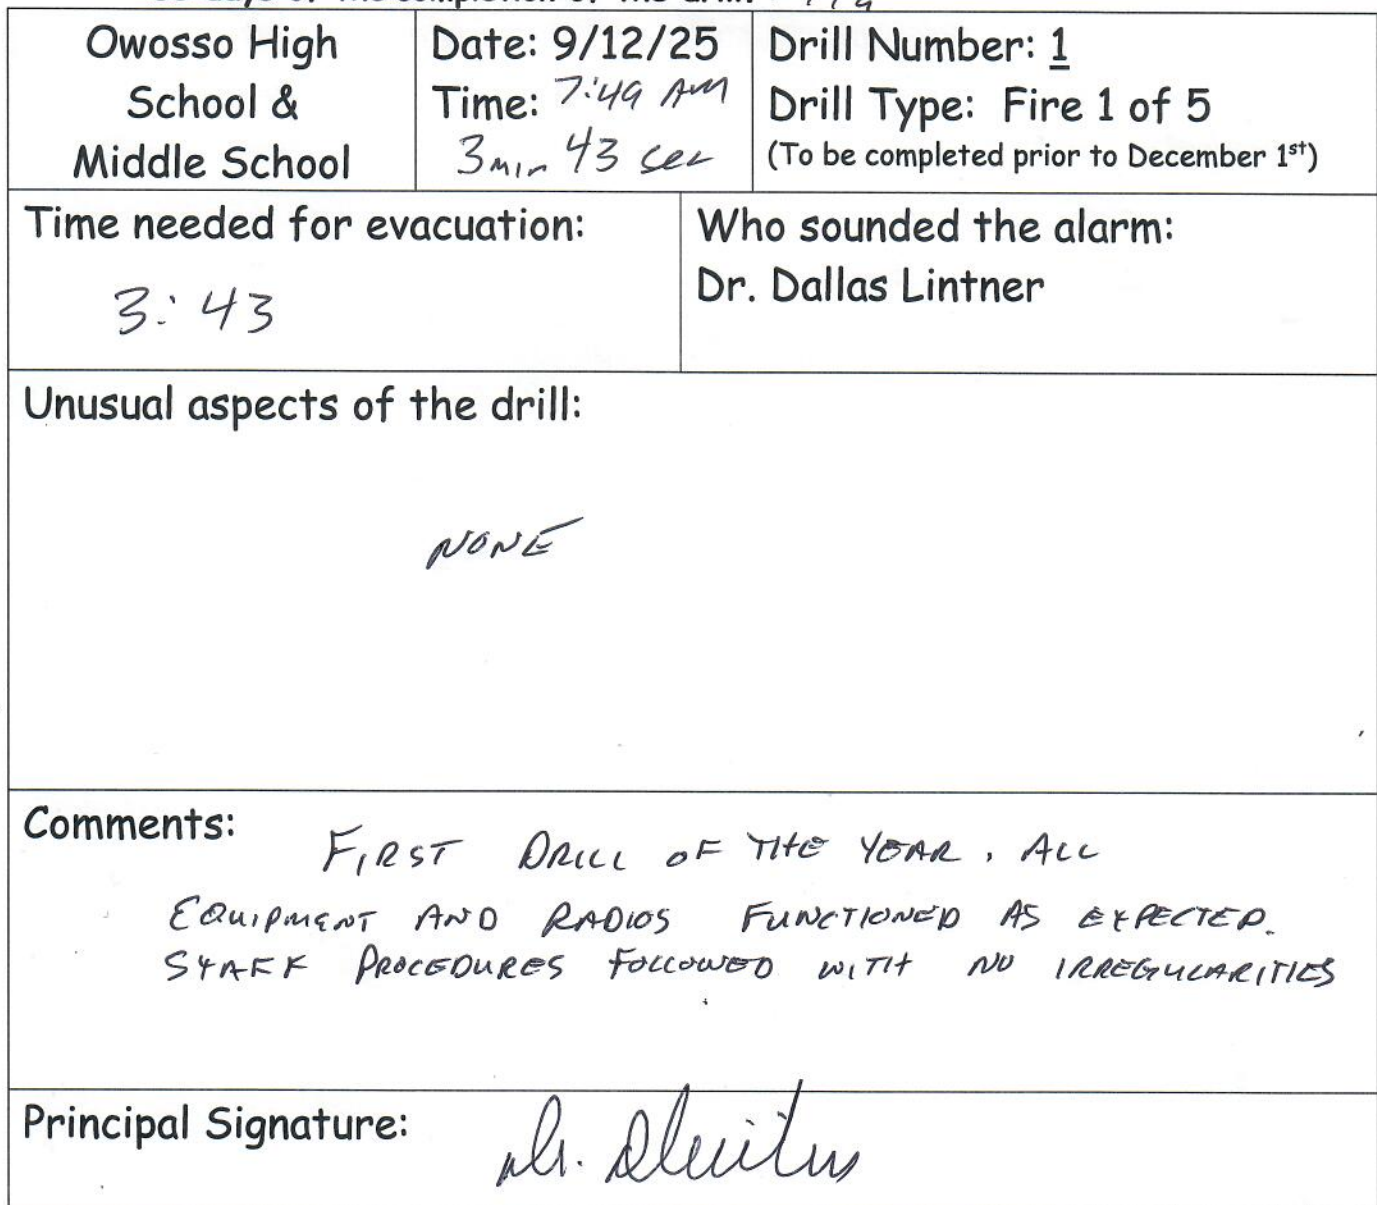 days of the completion of the drill
Owosso High
School &
Middle School
Date: 9/12/25
Time: 7:49 AM
3 min 43 sec
Drill Number: 1
Drill Type: Fire 1 of 5
(To be completed prior to December 1st)
Time needed for evacuation:
3:43
Who sounded the alarm:
Dr. Dallas Lintner
Unusual aspects of the drill:
NONE
Comments: FIRST DRILL OF THE YEAR. ALL
EQUIPMENT AND RADIOS FUNCTIONED AS EXPECTED.
STAFF PROCEDURES FOLLOWED WITH NO IRREGULARITIES
Principal Signature: